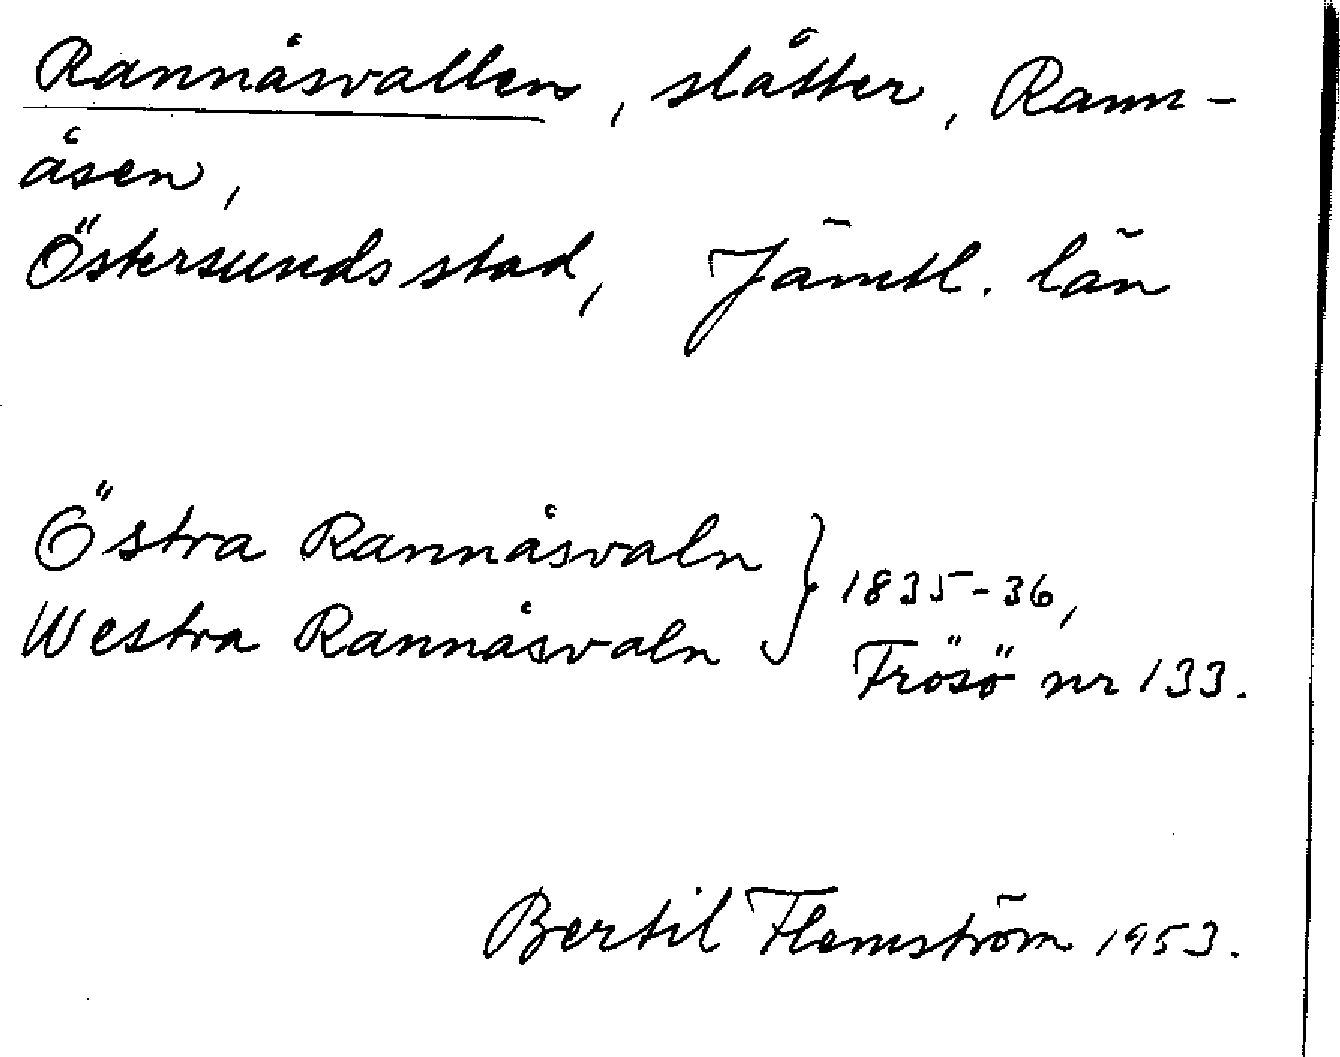 Rannåsvallen, slåtter, Rann-
åsen,
Östersunds stad, Jämtl. län
Östra Rannåsvaln
Westra Rannåsvaln } 1835-36,
Frösö nr 133.
Bertil Flemström 1953.